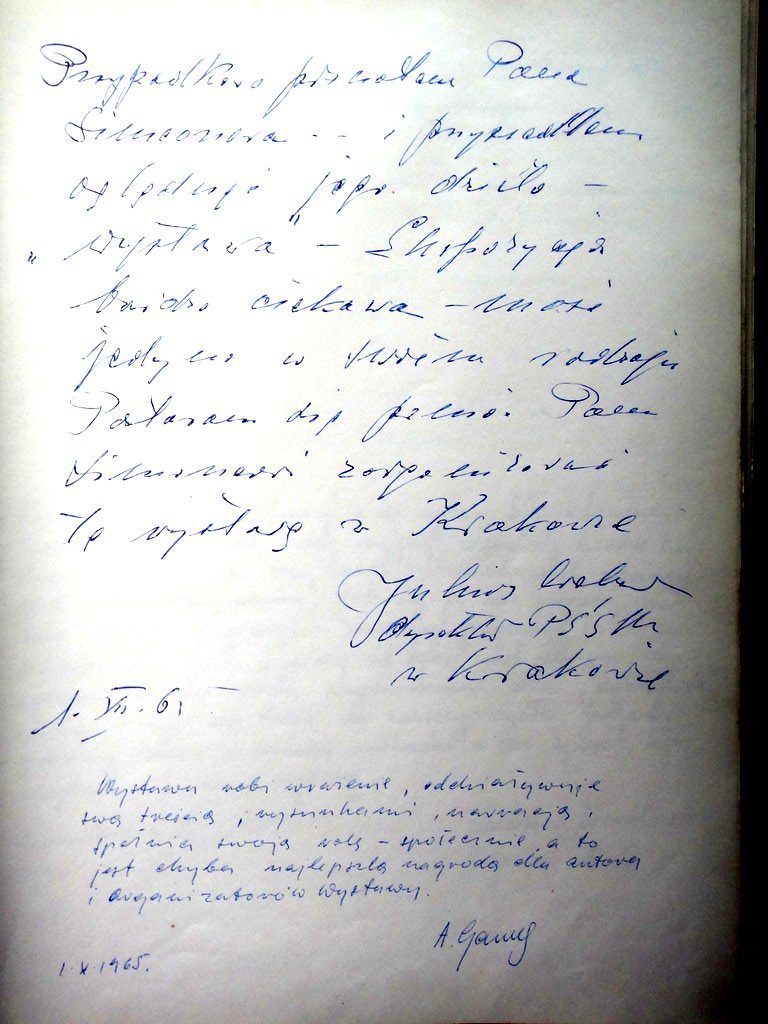 Przypadkowo poznałam Pana
Simonowa -- i przysiadłam
oglądając jego dzieło -
"wystawa" - Ekspozycja
bardzo ciekawa - może
jedyna w swoim rodzaju
Postaram się pomóc Panu
zorganizować
tę wystawę w Krakowie
Juliusz
Dyrektor
w Krakowie
1. VII. 65
Wystawa robi wrażenie, oddziaływuje
swą treścią, rysunkami, narracją,
spełnia swoją rolę - społecznie, a to
jest chyba najlepszą nagrodą dla autora
i organizatorów wystawy.
A.
1.X.1965.